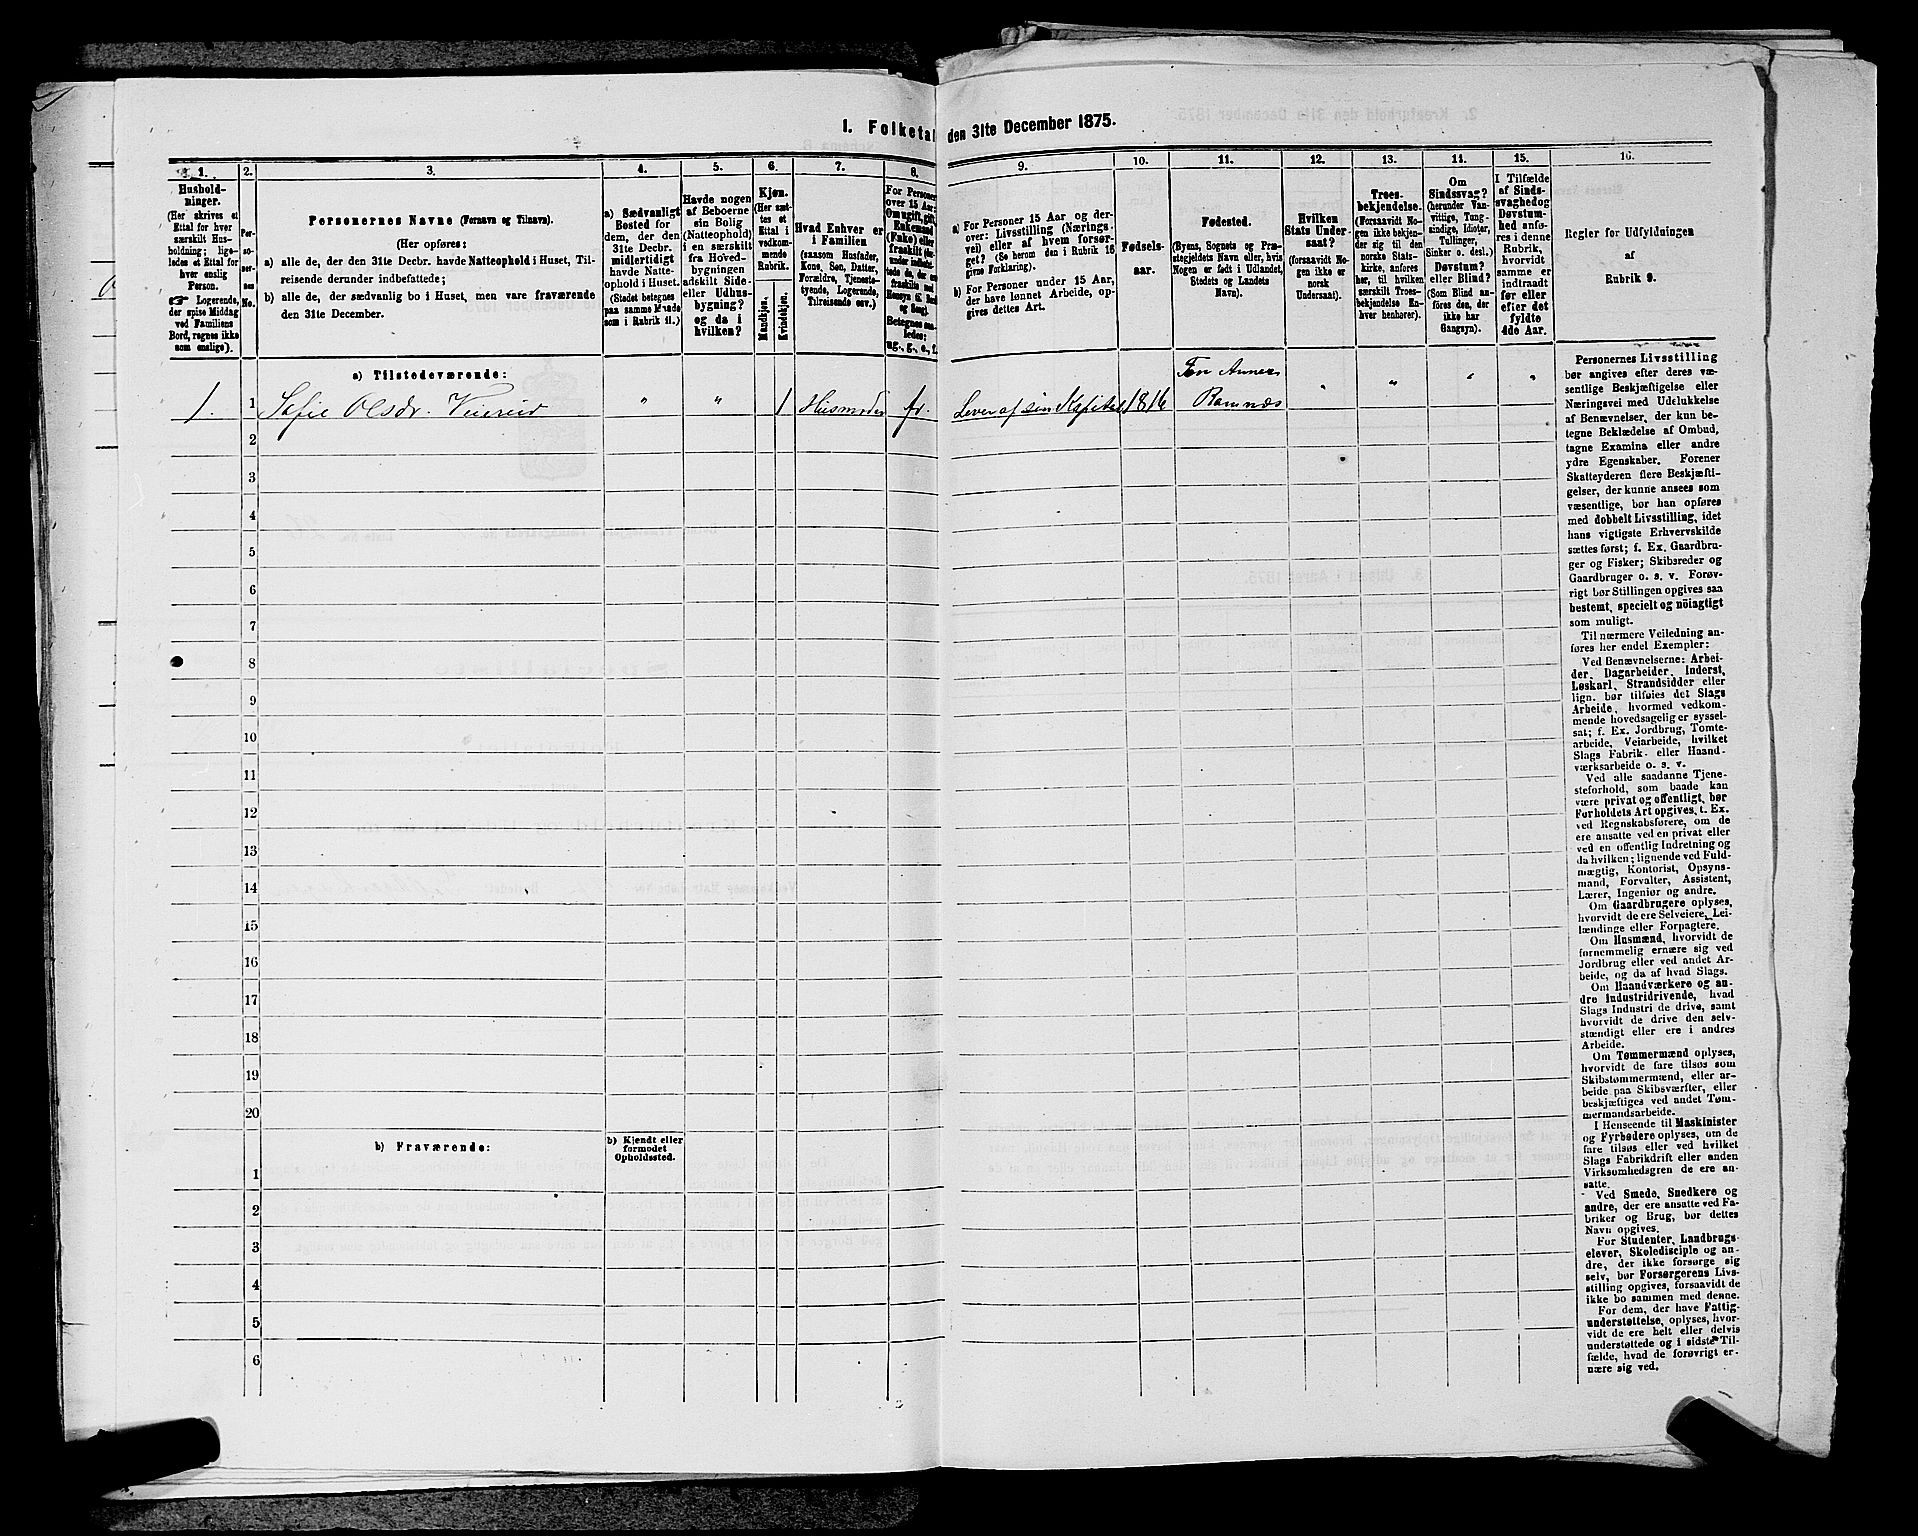 I. Folketal den 31te December 1875.
1. 2. 3. 4. 5. 6. 7. 8. 9. 10. 11. 12. 13. 14. 15. 16.
Hushold-
ninger.
(Her skrives et
Ettal for hver
særskilt Hus-
holdning; lige-
ledes et Ettal for
hver enslig
Person.
☞ Logerende,
der spise Middag
ved Familiens
Bord, regnes ikke
som enslige).
Per-
so-
ner-
nes
No.
Personernes Navne (Fornavn og Tilnavn).
(Her opføres:
a) alle de, der den 31te Decbr. havde Natteophold i Huset, Til-
reisende derunder indbefattede;
b) alle de, der sædvanlig bo i Huset, men vare fraværende
den 31te December.
a) Sædvanligt
Bosted for
dem, der den
31te Decbr.
midlertidigt
havde Natte-
ophold i Huset.
(Stedet betegnes
paa samme Maade
som i Rubrik 11.)
Havde nogen
af Beboerne
sin Bolig
(Natteophold)
i en særskilt
fra Hoved-
bygningen
adskilt Side-
eller Udhus-
bygning?
og da i
hvilken?
Kjøn.
(Her sæt-
tes et
Ettal i
vedkom-
mende
Rubrik.
Mandkjøn.
Kvindekjøn.
Hvad Enhver er
i Familien
(saasom Husfader,
Kone, Søn, Datter,
Forældre, Tjeneste-
tyende, Logerende,
Tilreisende osv.)
For Personer
over 15 Aar:
Om ugift, gift,
Enkemand
(Enke) eller
fraskilt
Betegnes saa-
ledes:
ug., g., e., f.
a) For Personer 15 Aar og der-
over: Livsstilling (Nærings-
vei) eller af hvem forsør-
get? (Se herom den i Rubrik 16
givne Forklaring).
b) For Personer under 15 Aar,
der have lønnet Arbeide, op-
gives dettes Art.
Fødsels-
aar.
Fødested.
(Byens, Sognets og Præ-
stegjeldets Navn eller, hvis
Nogen er født i Udlandet,
Stedets og Landets
Navn).
Hvilken
Stats Under-
saat?
(forsaavidt No-
gen ikke er
norsk
Undersaat).
Troes-
bekjendelse.
(Forsaavidt No-
gen ikke bekjen-
der sig til den
norske Stats-
kirke, anføres
her, til hvilken
særskilt Troes-
bekjendelse En-
hver henhører).
Om
Sindssvag?
(herunder Van-
vittige, Tung-
sindige, Idioter,
Tullinger,
Sinker o. desl.)
Døvstum?
eller Blind?
(Som Blind an-
føres den, der
ikke har
Gangsyn).
I Tilfælde
af Sinds-
svaghed og
Døvstum-
hed anfø-
res i denne
Rubrik,
hvorvidt
samme er
indtraadt
før eller
efter det
fyldte
4de Aar.
Regler for Udfyldningen
af
Rubrik 9.
a) Tilstedeværende:
1. 1 Sofie Olsdr. Veiereid " " 1 Husmoder fr. Lever af sin Kapital 1816 Ramnæs " " " "
2
3
4
5
6
7
8
9
10
11
12
13
14
15
16
17
18
19
20
b) Fraværende:
b) Kjendt eller
formodet
Opholdssted.
1
2
3
4
5
6
Personernes Livsstilling
bør angives efter deres væ-
sentlige Beskjæftigelse eller
Næringsvei med Udelukkelse
af Benævnelser, der kun be-
tegne Beklædelse af Ombud,
tagne Examina eller andre
ydre Egenskaber. Forener
Skatteyderen flere Beskjæfti-
gelser, der kunne ansees som
væsentlige, bør han opføres
med dobbelt Livsstilling, idet
hans vigtigste Erhvervskilde
sættes først; f. Ex. Gaardbru-
ger og Fisker; Skibsreder og
Gaardbruger o. s. v. Forøv-
rigt bør Stillingen opgives saa
bestemt, specielt og nöiagtigt
som muligt.
Til nærmere Veiledning an-
føres her endel Exempler:
Ved Benævnelserne: Arbei-
der, Dagarbeider, Inderst,
Løskarl, Strandsidder eller
lign. bør tilføies det Slags
Arbeide, hvormed vedkom-
mende hovedsagelig er syssel-
sat; f. Ex. Jordbrug, Tomte-
arbeide, Veiarbeide, hvilket
Slags Fabrik- eller Haand-
værksarbeide o. s. v.
Ved alle saadanne Tjene-
steforhold, som baade kan
være privat og offentligt, bør
Forholdets Art opgives, t. Ex.
ved Regnskabsførere, om de
ere ansatte ved en privat eller
ved en offentlig Indretning og
da hvilken; lignende ved Fuld-
mægtig, Kontorist, Opsyns-
mand, Forvalter, Assistent,
Lærer, Ingeniør og andre.
Om Gaardbrugere oplyses,
hvorvidt de ere Selveiere, Lei-
lændinge eller Forpagtere.
Om Husmænd, hvorvidt de
fornemmelig ernære sig ved
Jordbrug eller ved andet Ar-
beide, og da af hvad Slags.
Om Haandværkere og an-
dre Industridrivende, hvad
Slags Industri de drive, samt
hvorvidt de drive den selv-
stændigt eller ere i andres
Arbeide.
Om Tømmermænd oplyses,
hvorvidt de fare tilsøs som
Skibstømmermænd, eller ar-
beide paa Skibsværfter, eller
beskjæftiges ved andet Tøm-
mermandsarbeide.
I Henseende til Maskinister
og Fyrbødere oplyses, om de
fare tilsøs eller ved hvilket
Slags Fabrikdrift eller anden
Virksomhedsgren de ere an-
satte.
Ved Smede, Snedkere og
andre, der ere ansatte ved Fa-
briker og Brug, bør dettes
Navn opgives.
For Studenter, Landbrugs-
elever, Skoledisciple og an-
dre, der ikke forsørge sig
selv, bør Forsørgerens Livs-
stilling opgives, forsaavidt de
ikke bo sammen med denne.
For dem, der have Fattig-
understøttelse, oplyses, hvor-
vidt de ere helt eller delvis
understøttede og i sidste Til-
fælde, hvad de forøvrigt er-
nære sig ved.